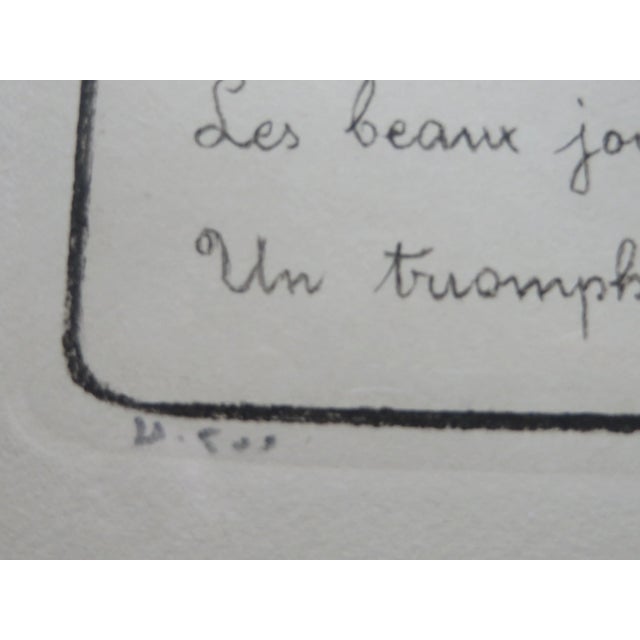 Les beaux jou
Un triomph